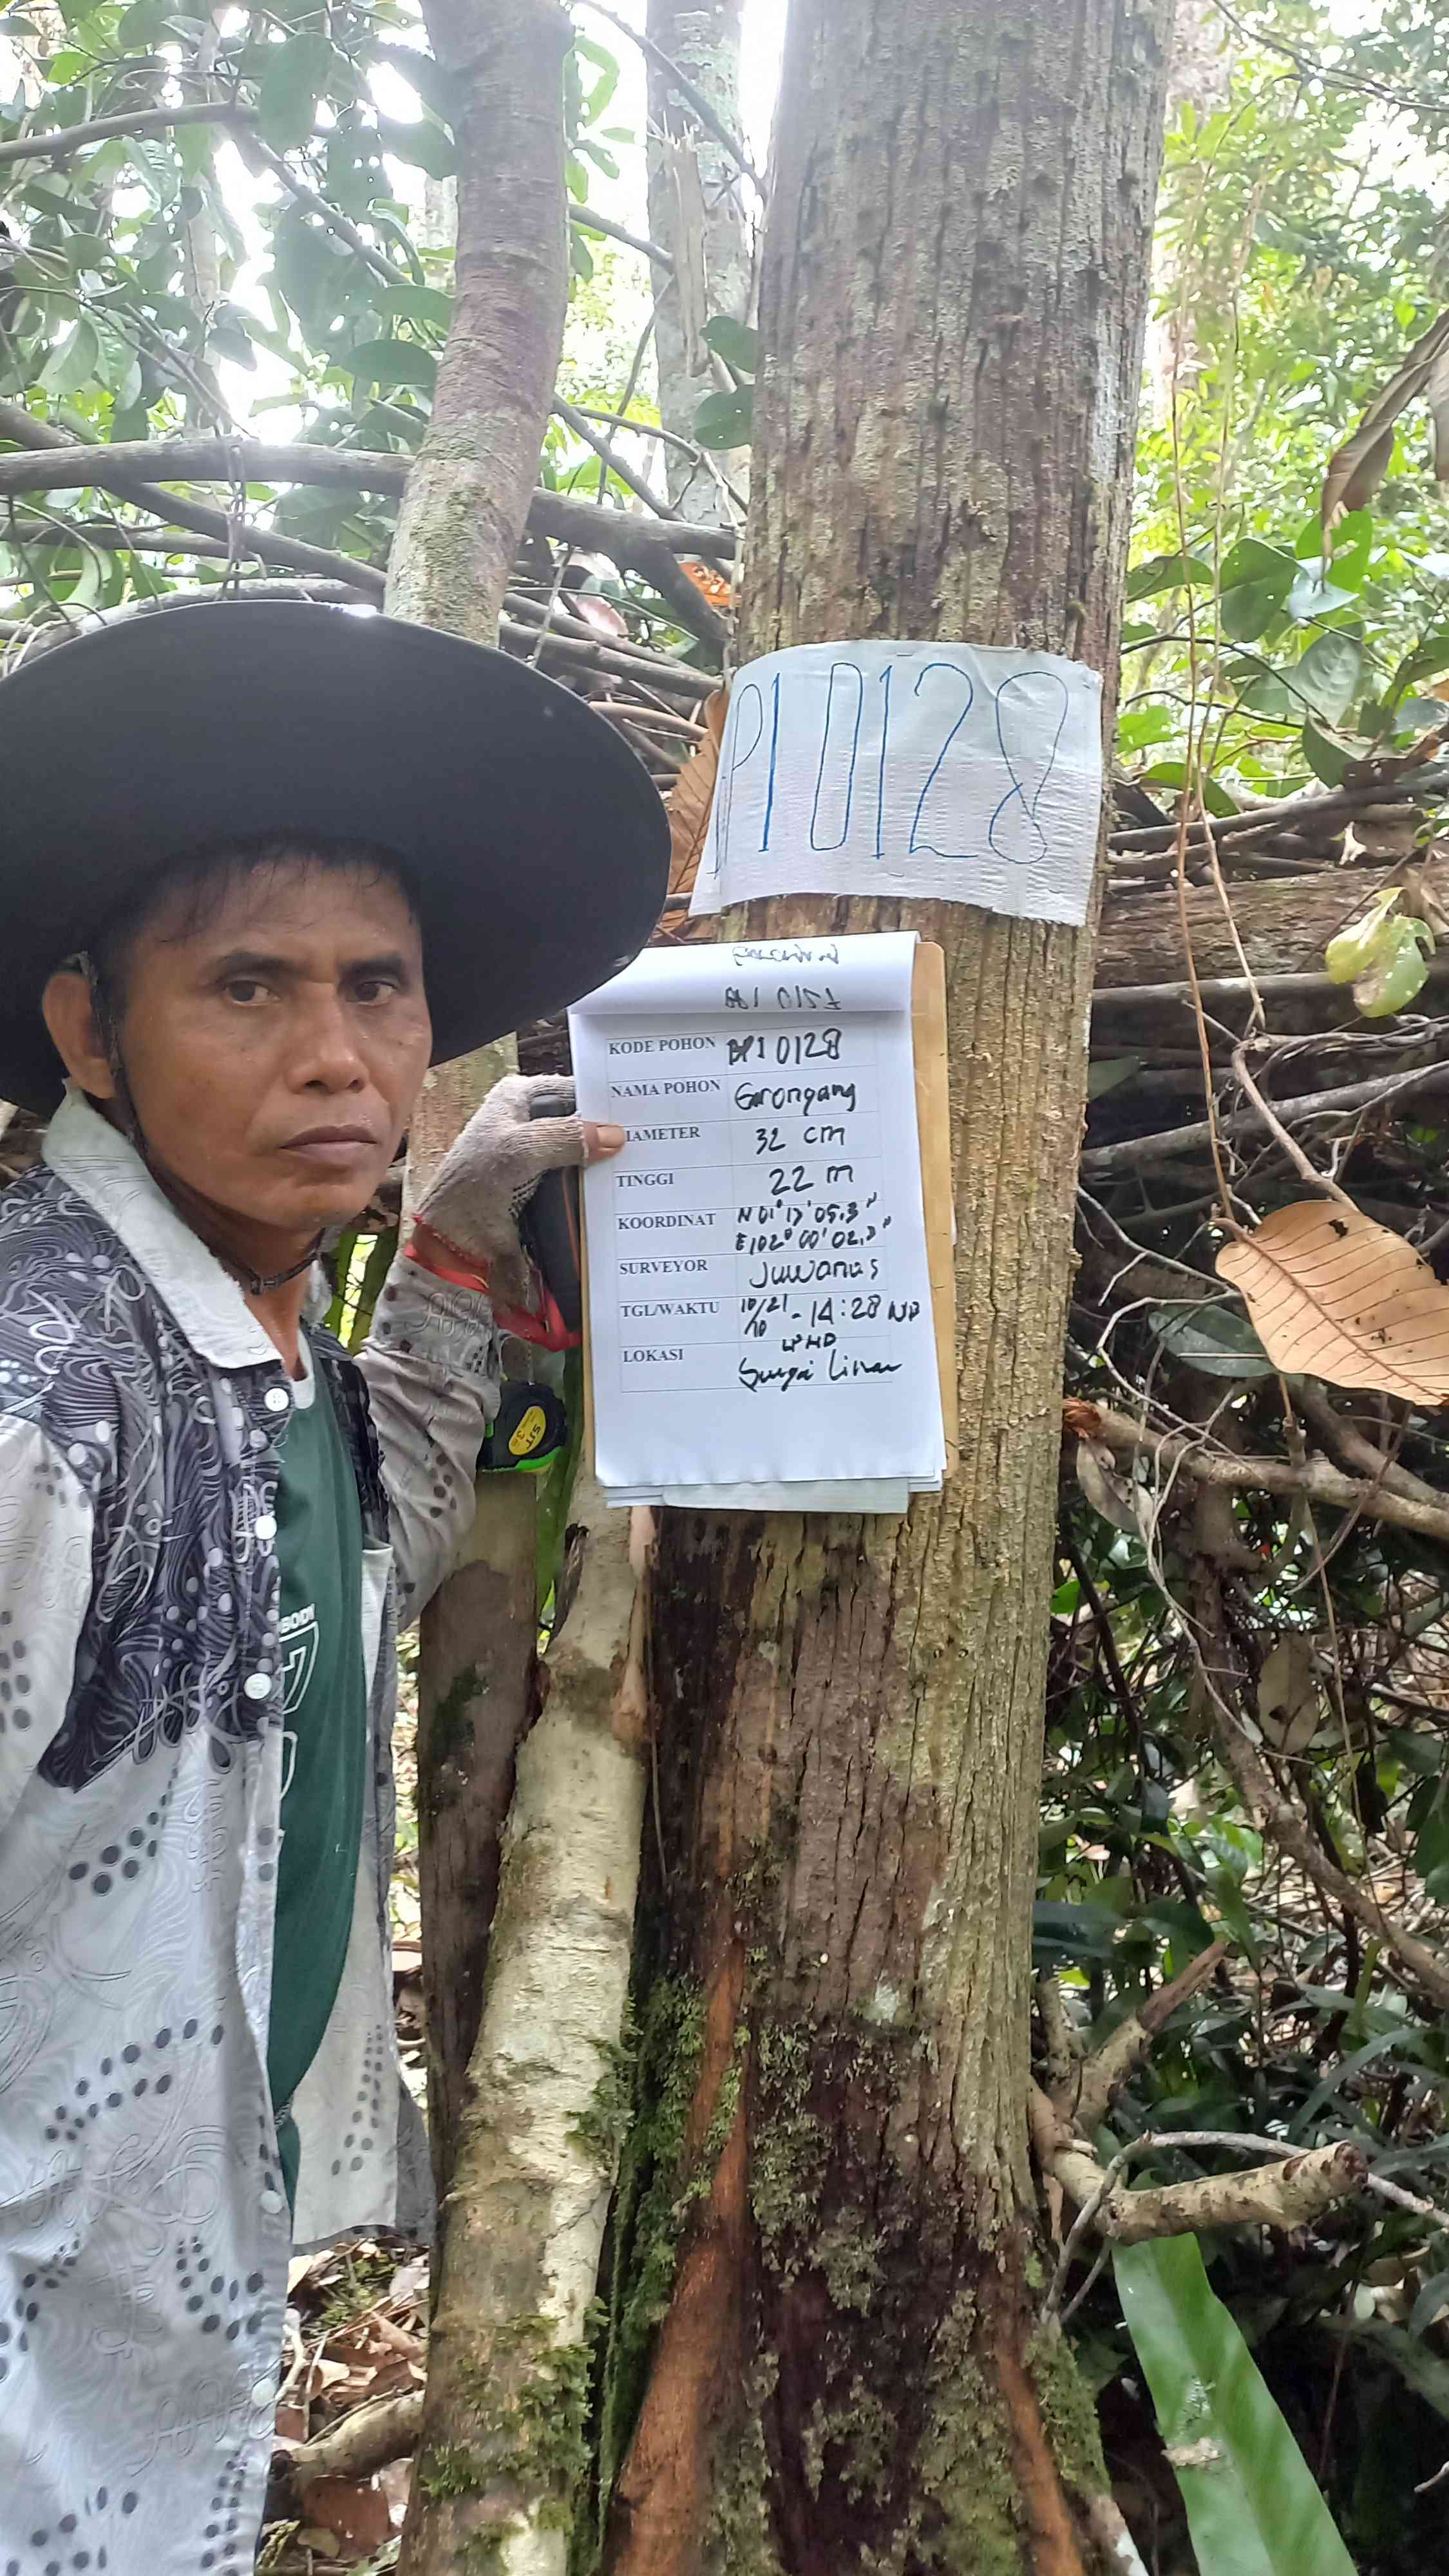 PI 0128
KODE POHON BPI 0128
NAMA POHON Geronggang
DIAMETER 32 cm
TINGGI 22 m
KOORDINAT N 01° 17' 05.3"
E 102° 00' 02.3"
SURVEYOR Juwanas
TGL/WAKTU 10/21/10 - 14:28 WIB
LOKASI LPHD
Sungai Linau
SJT
3m
BODY